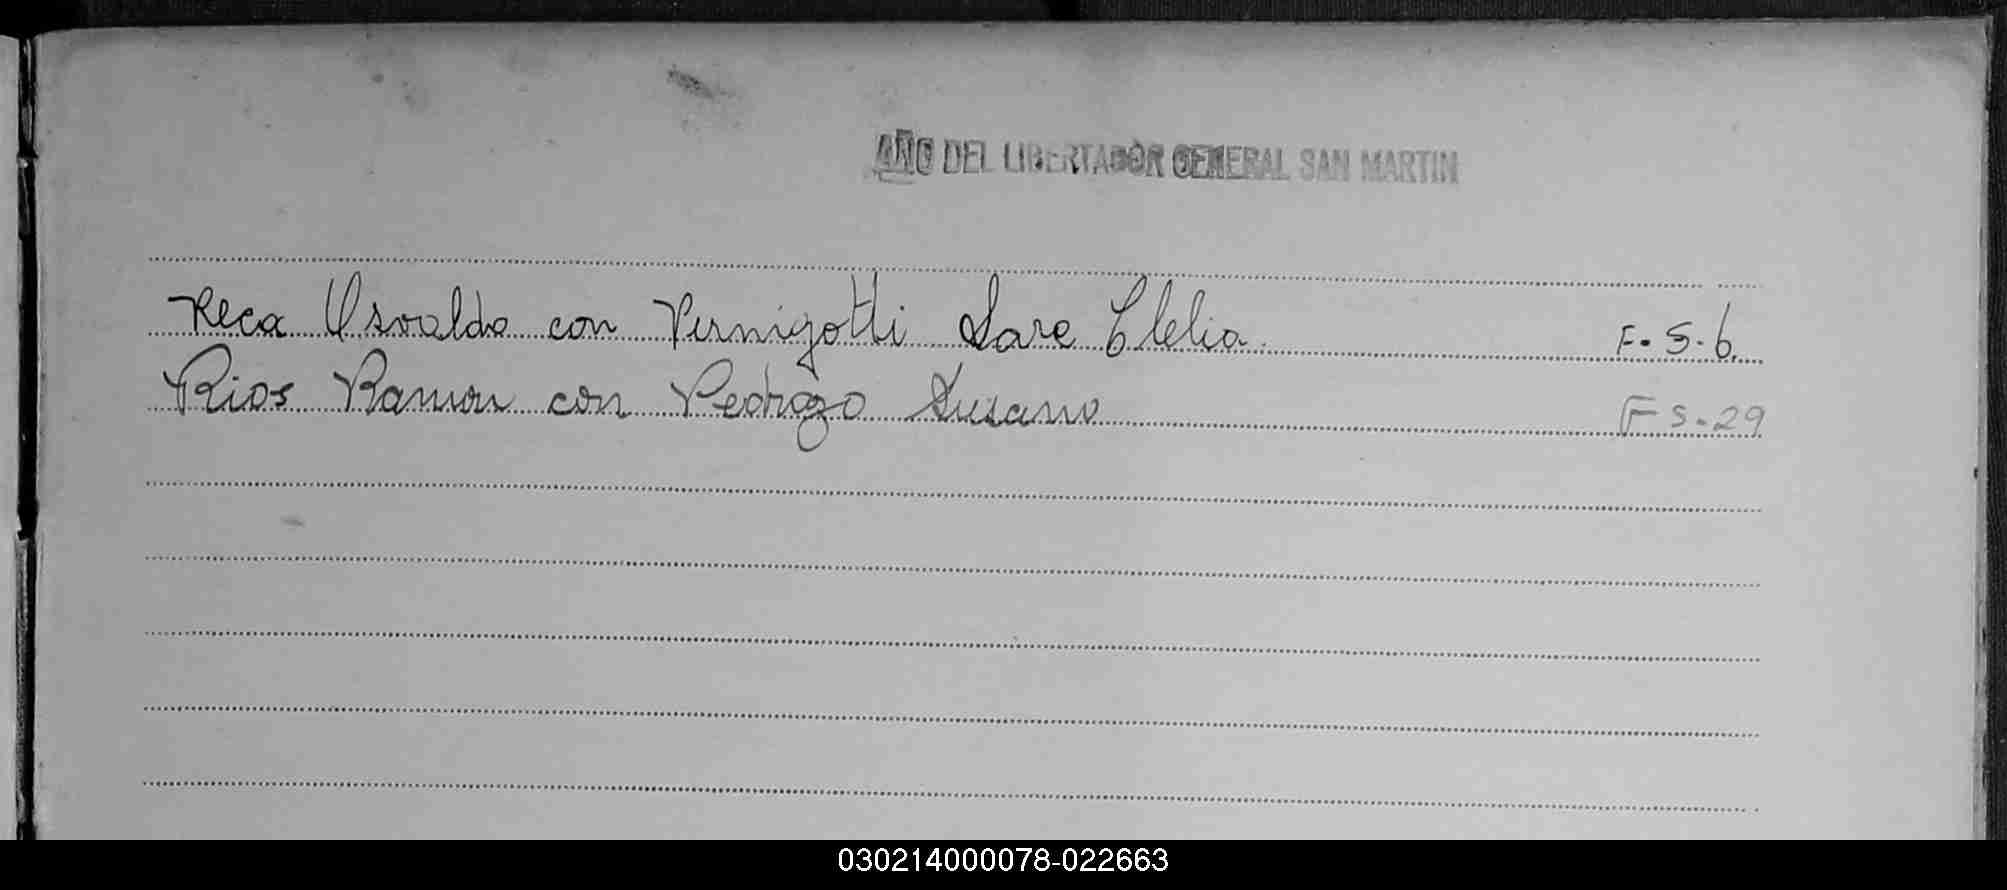 AÑO DEL LIBERTADOR GENERAL SAN MARTIN
Reca Osvaldo con Vernizotti Sara Clelia. F. S. 6.
Rios Ramon con Pedrozo Susana F S. 29
030214000078-022663